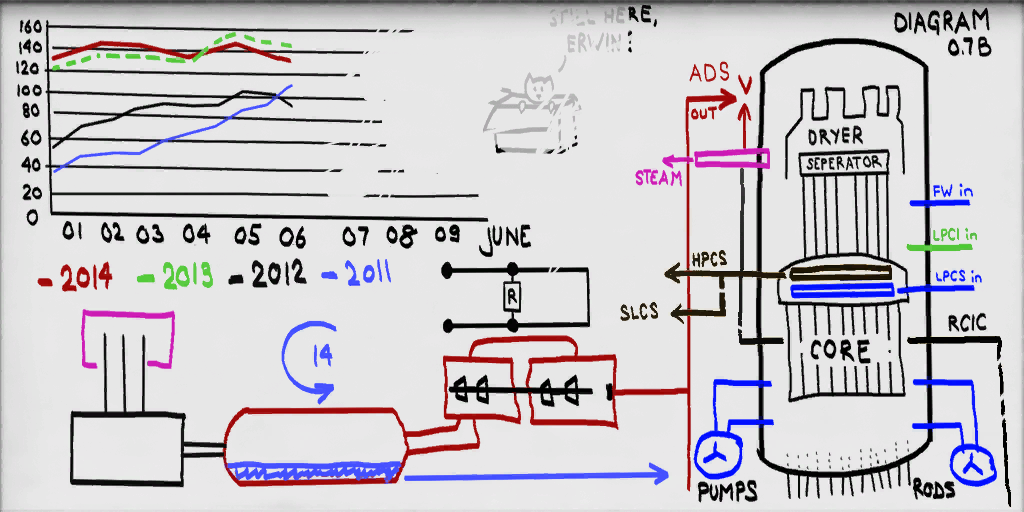 160
140
120
100
80
60
40
20
0
01 02 03 04 05 06 07 08 09 JUNE
-2014 -2013 -2012 -2011
STILL HERE,
ERWIN!
DIAGRAM
0.7B
ADS
OUT
STEAM
DRYER
SEPERATOR
FW in
LPCI in
LPCS in
HPCS
SLCS
RCIC
CORE
R
14
PUMPS
RODS